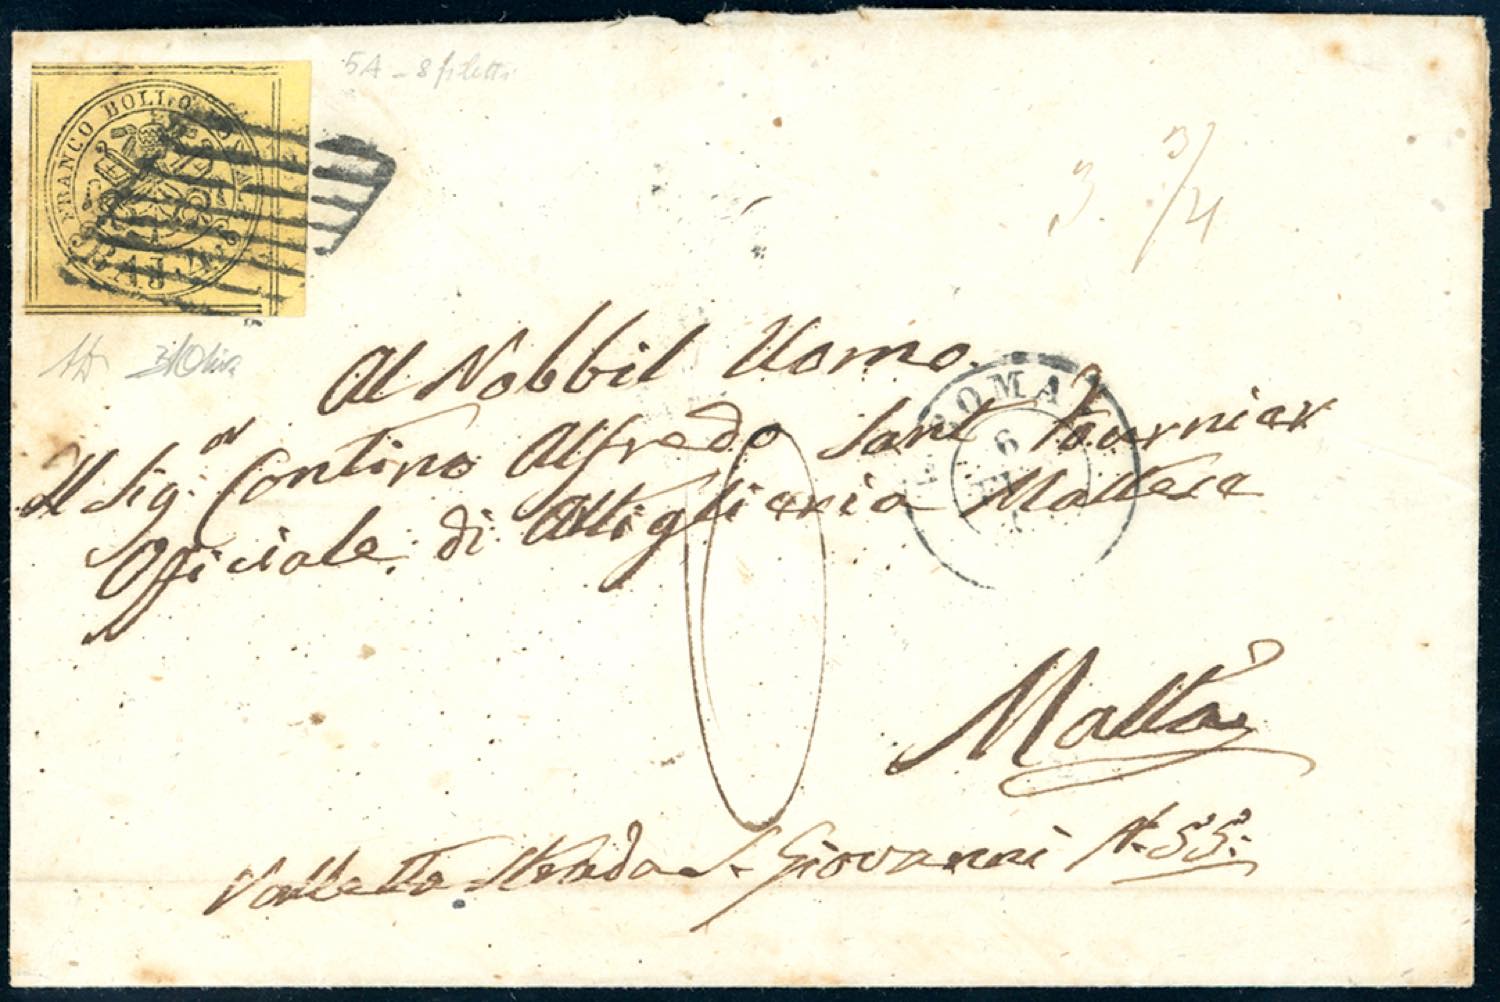 5A - 8 filetti
FRANCO BOLLO POSTALE
BAJ. 4.
3. 3/4
Al Nobbil Uomo.
Il Sig.or Contino Alfredo Sant Fournier
Officiale di Attiglieria Maltese
ROMA
6
Malta
Valletta Strada S. Giovanni N. 55.